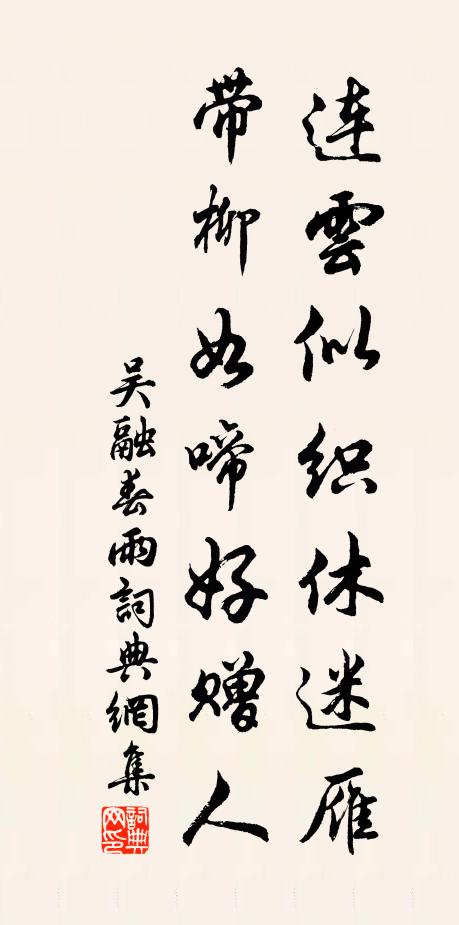 連雲似织休迷雁
带柳如啼好赠人
吴融春雨詞典網集
詞典
网印